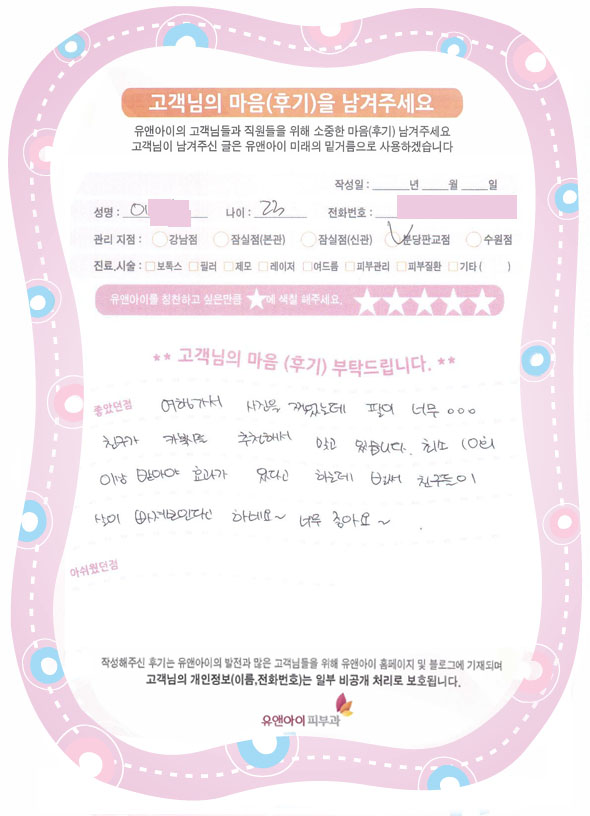 고객님의 마음(후기)을 남겨주세요
유앤아이의 고객님들과 직원들을 위해 소중한 마음(후기) 남겨주세요
고객님이 남겨주신 글은 유앤아이 미래의 밑거름으로 사용하겠습니다
작성일 : 년 월 일
성명 : 이 나이 : 23 전화번호 :
관리 지점 : 강남점 잠실점(본관) 잠실점(신관) 분당판교점 수원점
진료,시술 : 보톡스 필러 제모 레이저 여드름 피부관리 피부질환 기타 ( )
유앤아이를 칭찬하고 싶은만큼 ★에 색칠 해주세요. ★★★★★
** 고객님의 마음 (후기) 부탁드립니다. **
좋았던점 여행가서 사진을 찍었는데 팔이 너무 ...
친구가 카복시 추천해서 받고 있습니다. 최소 10회
이상 받아야 효과가 있다고 하는데 벌써 친구들이
살이 빠져보인다고 하네요~ 너무 좋아요~
아쉬웠던점
작성해주신 후기는 유앤아이의 발전과 많은 고객님들을 위해 유앤아이 홈페이지 및 블로그에 기재되며
고객님의 개인정보(이름,전화번호)는 일부 비공개 처리로 보호됩니다.
유앤아이피부과